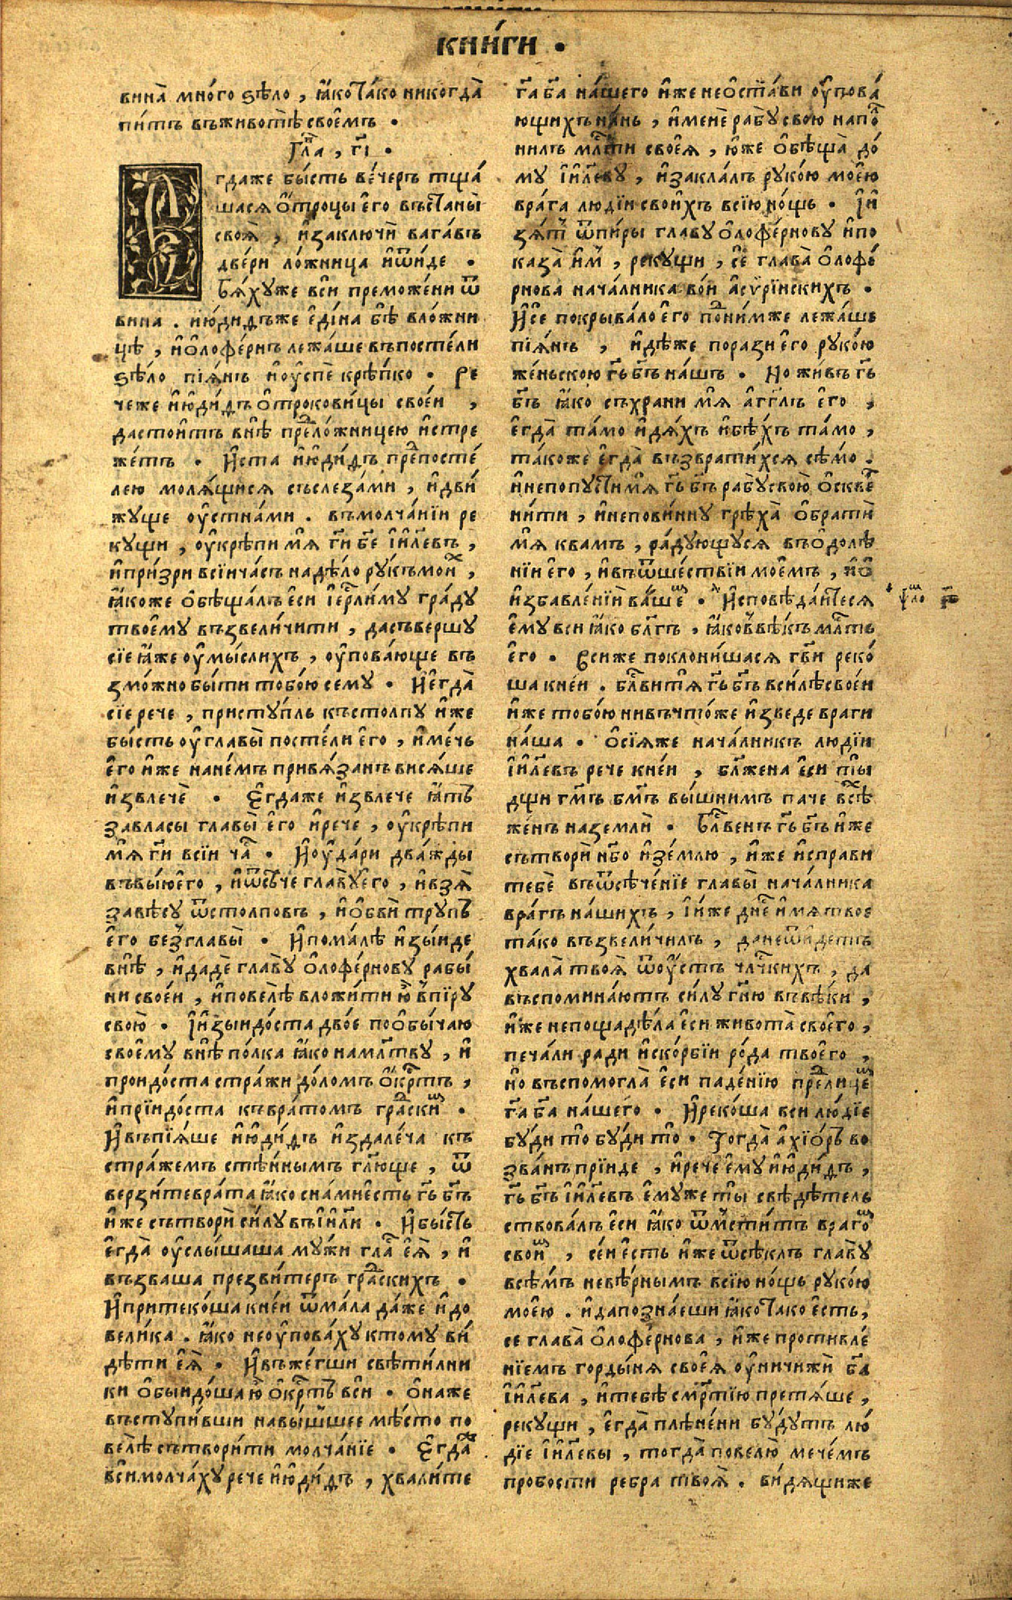 КНИ́ГИ .
вина̀ мно́го ѕѣ́ло , ꙗ҆́кѡ та́ко никогда̀
пи́тъ въ животѣ̀ свое́мъ .
Гла̀ , гі .
гдаже бы́сть ве́черъ тща́
шася ѻ҆́троцы є҆го̀ въ станы̀
своѧ̀ , и҆ заключѝ вага́въ
две́ри ло́жница и҆ ѿи́де .
Бѧ́хꙋже вси премоще́ни ѿ
вина . и҆юди́дъже є҆ди́на бѣ̀ в ложни
цѣ , и҆ ѻ҆лофе́рнъ лежа́ше въ посте́ли
ѕѣ́ло пїѧ́нъ и҆ ᲂу҆спѐ крѣ́пко . Ре
чеже и҆юди́дъ ѻ҆трокови́цы свое́и ,
да стои́тъ внѣ̀ пре ло́жницею и҆ стре
же́тъ . И҆ ста и҆юди́дъ пре посте́
лею молѧ́щися съ слеза́ми , и҆ дви́
жꙋще ᲂу҆стна́ми . въ молча́нїи ре
кꙋщи , ᲂу҆крѣпи́ мѧ гди бе і҆и҃левъ ,
и҆ при́зри в сїи ча́съ на дѣ́ло рꙋкъ мои ,
ꙗ҆́коже ѻ҆бѣща́лъ є҆си і҆ерлⷭ҇и́мꙋ гра́дꙋ
твоемꙋ̀ възвели́чити , да съвершꙋ
сїѐ ꙗ҆́же ᲂу҆мы́слихъ , ᲂу҆пова́юще въ
змо́жно бы́ти тобо́ю семꙋ̀ . И҆ є҆гда̀
сїѐ рече , пристꙋ́пль къ столпꙋ̀ и҆́же
бы́сть ᲂу҆ главы̀ посте́ли є҆го̀ , и҆ ме́чь
є҆го̀ и҆́же на не́мъ привѧ́занъ висѧ́ше
и҆звлечѐ . Є҆гдаже и҆звлече ꙗ҆́тъ
за власы главы̀ є҆го̀ и҆ речѐ , ᲂу҆крѣпи́
мѧ гди в сїи ча . И҆ ᲂу҆да́ри два́жды
въ вы́ю є҆го̀ , и҆ ѿсѣ́че главꙋ̀ є҆го̀ , и҆ взѧ̀
завѣ́сꙋ ѿ столпо́въ , и҆ ѻ҆бвѝ трꙋ́пъ
є҆го̀ без̾ главы̀ . И҆ пома́лѣ и҆зы́иде
внѣ̀ , и҆ дадѐ главꙋ̀ ѻ҆лофе́рновꙋ рабы́
ни свое́и , и҆ повелѣ̀ вложи́ти ю҆̀ в пїрꙋ
свою̀ . І҆ и҆зыидо́ста дво́е по ѻ҆бы́чаю
своемꙋ̀ внѣ̀ по́лка ꙗ҆́ко на млтвꙋ , и҆
проидо́ста стра́жи до́ломъ ѻ҆́крⷭ҇тъ ,
и҆ прїидо́ста къ врато́мъ гра́ски .
И҆ въпїѧ́ше и҆юди́дъ и҆здале́ча къ
стра́жемъ стѣ́ннымъ глюще , ѿ
верзи́те врата̀ ꙗ҆́ко с на́ми є҆сть гь бгъ
и҆́же сътворѝ си́лꙋ въ і҆и҃ли . И҆ бы́сть
є҆гда̀ ᲂу҆слы́шаша мꙋ́жи гла є҆ѧ̀ , и҆
възваша презви́теръ гра́скихъ .
И҆ притеко́ша к не́и ѿ ма́ла да́же и҆ до
вели́ка . ꙗ҆́ко не ᲂу҆пова́хꙋ ктомꙋ̀ ви́
дѣти є҆ѧ̀ . И҆ въже́гши свѣти́лни
ки ѻ҆быидо́ша ю҆̀ ѻ҆́крⷭ҇тъ вси . Ѻ҆на́же
въстꙋпи́вши на вы́шшее мѣ́сто по
велѣ̀ сътвори́ти молча́нїе . Є҆гда
вси молча́хꙋ рече и҆юди́дъ , хвали́те
га ба на́шего и҆́же не ѻ҆ста́ви ᲂу҆пова́
ющихъ на́нь , и҆ мене́ рабꙋ̀ свою̀ напо
нилъ млⷭ҇ти своеѧ̀ , ю҆́же ѻ҆бѣща̀ до́
мꙋ і҆и҃левꙋ , и҆ закла́лъ рꙋко́ю мое́ю
врага̀ люді́и свои́хъ в сїю̀ но́щь . І҆ и҆
зѧ́т ѿ пи́ры главꙋ̀ ѻ҆лофе́рновꙋ и҆ по
каза̀ и҆́м , рекꙋщи , сѐ глава̀ ѻ҆лофе́
рнова нача́лника во́и а҆сѵрі́искихъ .
И҆ се покрыва́ло є҆го̀ по ни́мже лежа́шь
пїѧ́нь , и҆дѣ́же поразѝ є҆го̀ рꙋко́ю
же́ньскою гь бгъ на́шъ . Но жи́въ гь
бгъ ꙗ҆́ко съхрани́ мѧ а́гг҃лъ є҆го̀ ,
є҆гда̀ та́мо и҆дѧ́хъ и҆ бѣ́хъ та́мо ,
та́коже є҆гда̀ възврати́хся сѣ́мо .
и҆ не попꙋсти́ мѧ гь бгъ рабꙋ̀ свою̀ ѻ҆скве
ни́ти , и҆ непови́ннꙋ грѣ́ха̀ ѻ҆братѝ
мѧ к ва́мъ , ра́дꙋющꙋся въ ѻ҆долѣ́
нїи є҆го̀ , и҆ въ ѿше́ствїи мое́мъ , и҆ ѻ҆
и҆збавле́нїи ва́ше . И҆сповѣ́даитеся
є҆мꙋ̀ вси ꙗ҆́ко бл҃гъ , ꙗ҆́ко в вѣ́къ млⷭ҇ть
є҆го̀ . Всиже поклони́шася гви реко́
ша к не́и . блгⷭ҇ви́ тѧ гь бгъ в си́лѣ свое́и
и҆́же тобо́ю ни въ что́же и҆зведе враги
на́ша . Ѻ҆сі́ѧже нача́лникъ люді́и
і҆и҃левъ рече к не́и , блаже́на є҆си ты̀
дщи гмъ бмъ вы́шнимъ паче все
же́нъ на землѝ . Блгⷭ҇ве́нъ гь бгъ и҆́же
сътворѝ нбо и҆ зе́млю , и҆́же и҆справи
тебѐ въ ѿсѣче́нїе главы̀ нача́лника
вра́гъ на́шихъ , і҆ и҆́же дне и҆́мѧ твое
та́ко възвели́чилъ , да не ѿи́детъ
хвала̀ твоѧ̀ ѿ ᲂу҆́стъ члчкихъ , да
въспомина́ютъ си́лꙋ гню въ вѣ́ки ,
и҆́же не пощадѣ́ла є҆си живота̀ своего̀ ,
печа́ли ра́ди и҆ ско́рбїи ро́да твоего̀ ,
но въспомогла̀ є҆си паде́нїю пре лице
га ба на́шего . И҆ реко́ша вси лю́дїе
бꙋ́ди то бꙋ́ди то . Тогда̀ а҆хїо́ръ во
зва́нъ прїиде , и҆ рече є҆мꙋ̀ и҆юди́дъ ,
гь бгъ і҆и҃левъ є҆мꙋ́же ты̀ свѣдѣ́тель
ствова́лъ є҆си ꙗ҆́ко ѿмсти́тъ враго
свои , се́и є҆сть и҆́же ѿсѣ́клъ главꙋ̀
всѣ́мъ невѣ́рнымъ в сїю̀ но́щь рꙋко́ю
мое́ю . и҆ да позна́еши ꙗ҆́ко та́ко є҆сть ,
се глава̀ ѻ҆лофе́рнова , и҆́же противле́
нїемъ горды́ня своеѧ̀ ᲂу҆ничижѝ ба
і҆и҃лева , и҆ тебѣ̀ сме́ртїю претѧ́ше ,
рекꙋщи , є҆гда̀ плѣне́ни бꙋ́дꙋтъ лю́
дїе і҆и҃левы , тогда̀ повелю̀ мече́мъ
пробости ребра твоѧ̀ . ви́дѧщиже